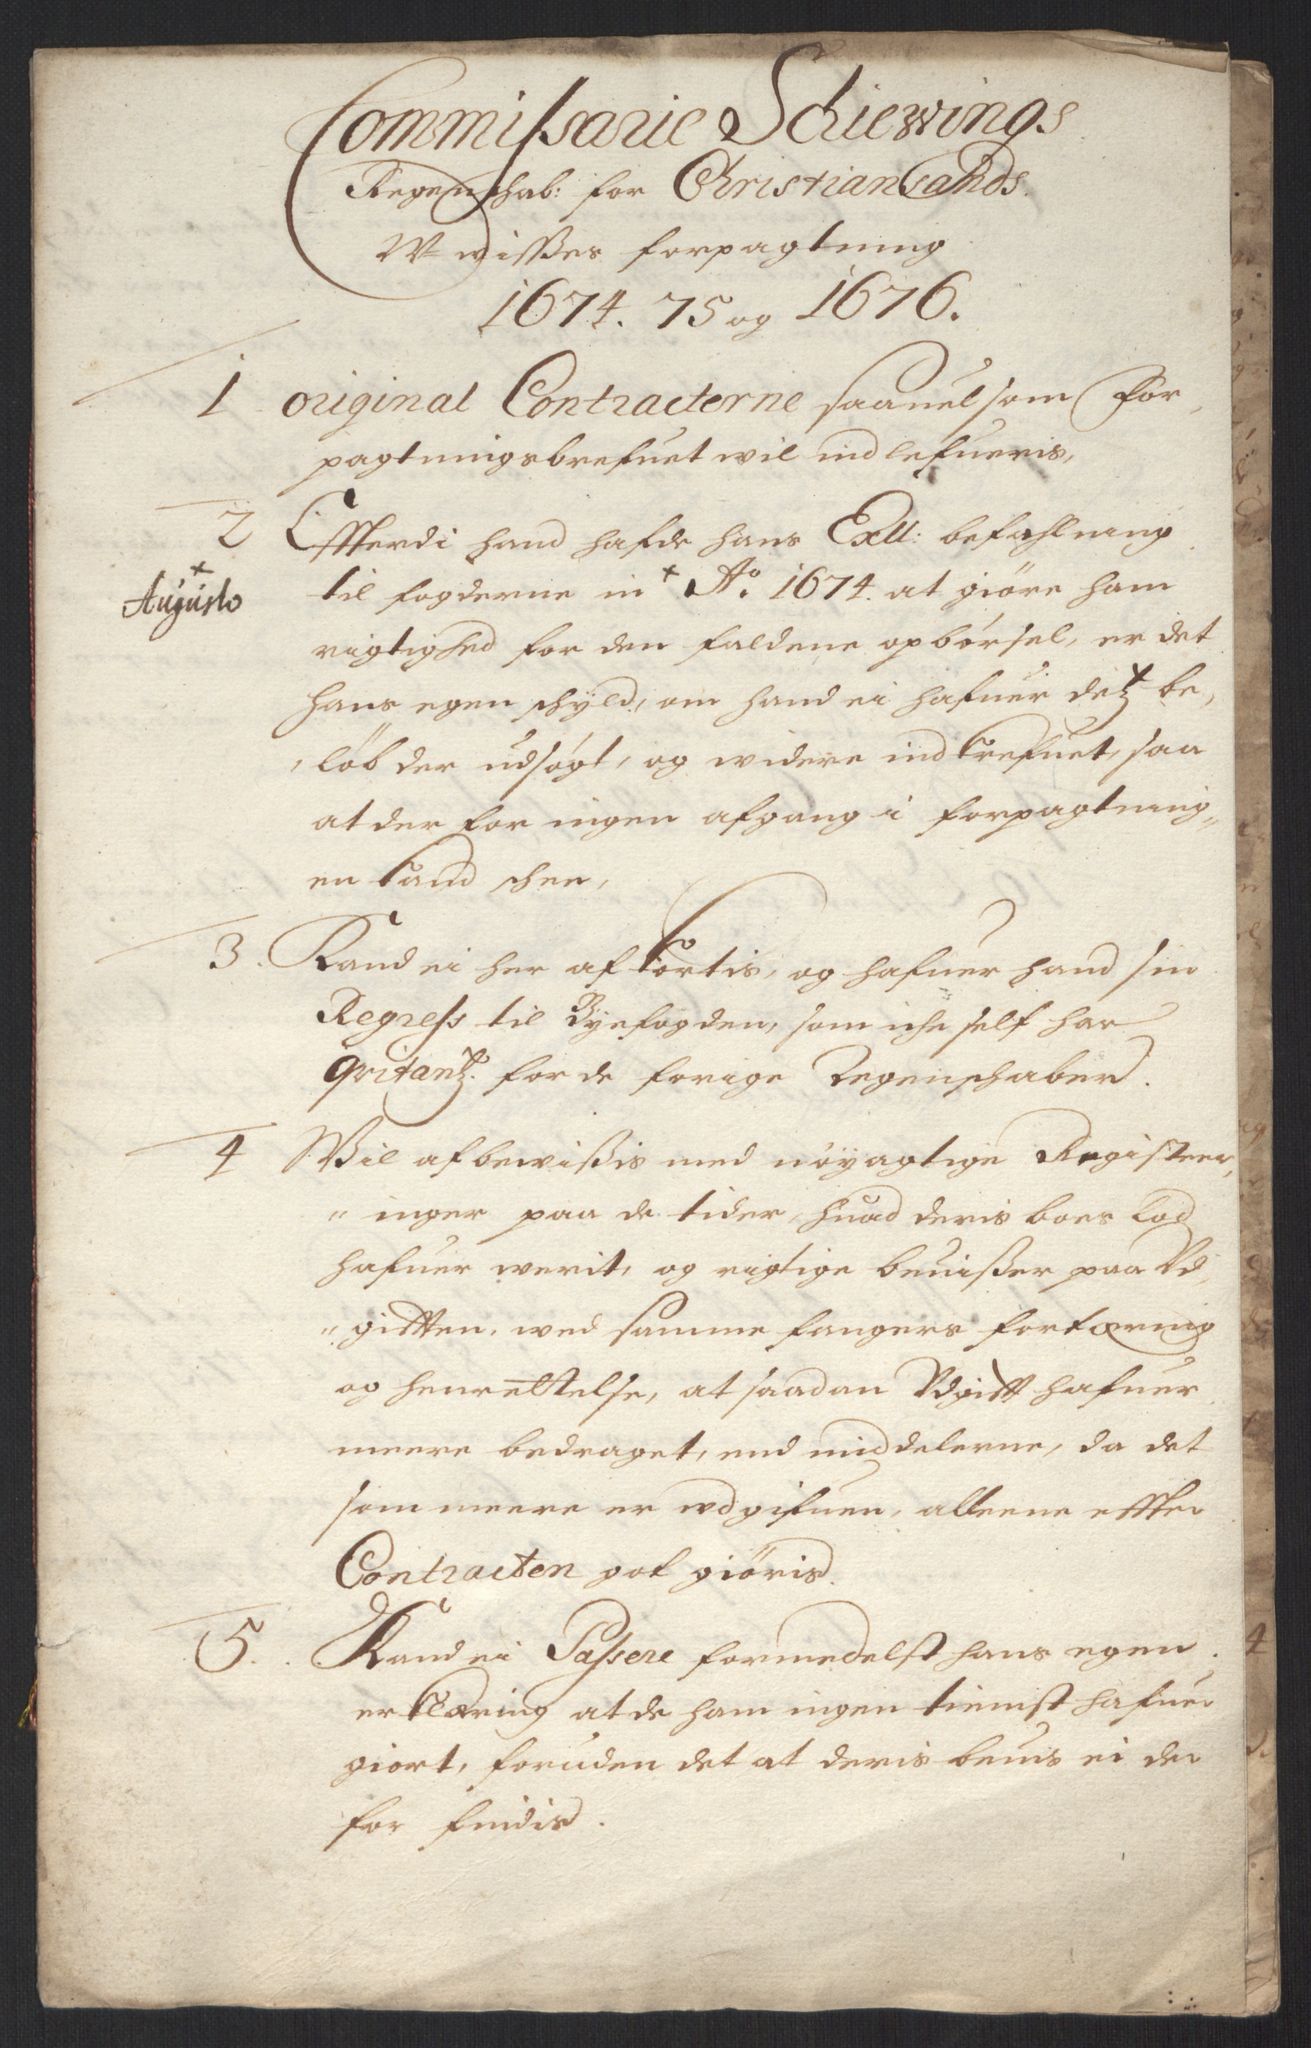 Commissarie Schiewings
Regenschab: for Christiansands
W wisses forpagtning
1674. 75 og 1676.
1 original Contracterne saauel som For,
pagtningsbrefuet wil indlefueris,
2 Effterdi hand hafde hans Exll: befahlning
til fogderne in x Ao. 1674. at giöre ham
x Augusto
rigtighed for den faldene opbörsel, er det
hans egen schyld, om hand ei hafuer detz be,
, löb der udsögt, og widere indkrefuet, saa
at der for ingen afgang i forpagtning,,
en kand schee,
3. Kand ei her af kortis, og hafuer hand sin
Regress til Byefogden, som iche self har
qvitantz. for de forige Regenschaber.
4 Wil afbewissis med nöyagtige Registeer,
,, inger paa de tider, huad deris boes lod
hafuer werit, og rigtige beuisser paa Vd,
,, gifften, wed samme fangers fortæring
og henrettelse, at saadan Vdgifft hafuer
meere bedraget, end middelerne, da det
som meere er wdgifuen, alleene effter
Contracten got giöris.
5. Kand ei Passere formedelst hans egen
erklæring at de ham ingen tienist hafuer
giort, foruden det at deris beuis ei der
for findis.